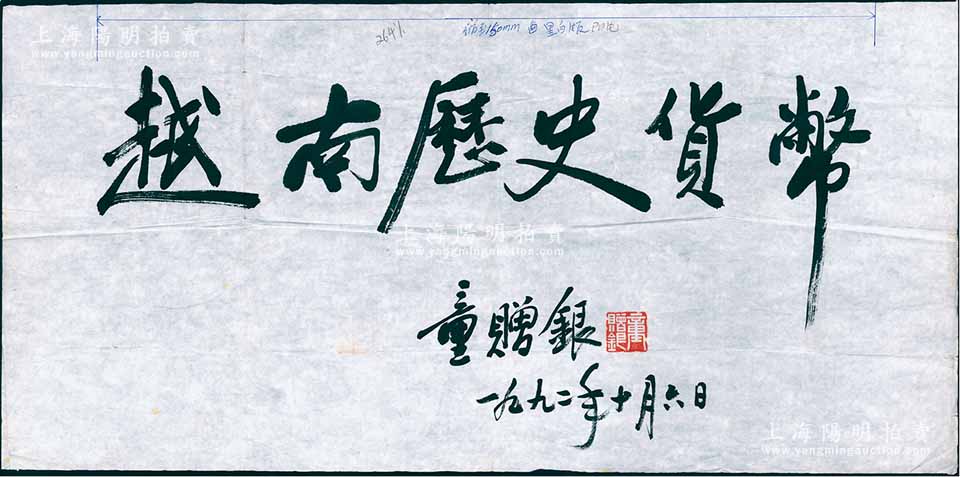 上海陽明拍賣
www.yangmingauction.com
264%
越南歷史貨幣
上海陽明拍賣
www.yangmingauction.com
童贈銀
童贈銀
一九九二年十月六日
上海陽明拍賣
www.yangmingauction.com